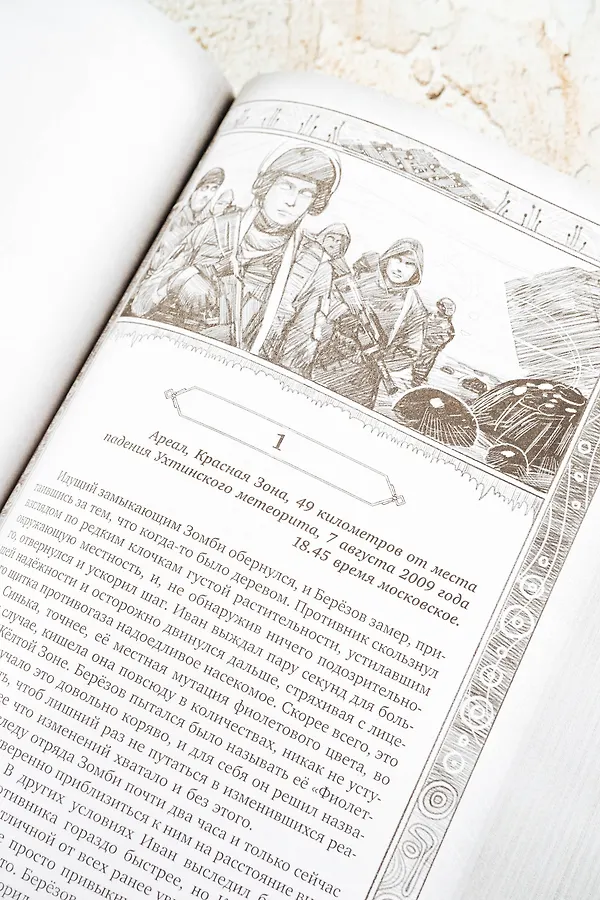 1
Ареал, Красная Зона, 49 километров от места
падения Ухтинского метеорита, 7 августа 2009 года
18.45 время московское.
Идущий замыкающим Зомби обернулся, и Берёзов замер, при-
таившись за тем, что когда-то было деревом. Противник скользнул
взглядом по редким клочкам густой растительности, устилавшим
окружающую местность, и, не обнаружив ничего подозрительно-
го, отвернулся и ускорил шаг. Иван выждал пару секунд для боль-
шей надёжности и осторожно двинулся дальше, стряхивая с лице-
го щитка противогаза надоедливое насекомое. Скорее всего, это
Синька, точнее, её местная мутация фиолетового цвета, во
случае, кишела она повсюду в количествах, никак не усту-
Жёлтой Зоне. Берёзов пытался было называть её «Фиолет-
учало это довольно коряво, и для себя он решил назва-
ть, чтоб лишний раз не путаться в изменившихся реа-
ее что изменений хватало и без этого.
следу отряда Зомби почти два часа и только сейчас
уверенно приблизиться к ним на расстояние
В других условиях Иван выследил
отивника гораздо быстрее, но
отличной от всех ранее
просто
Берёзов